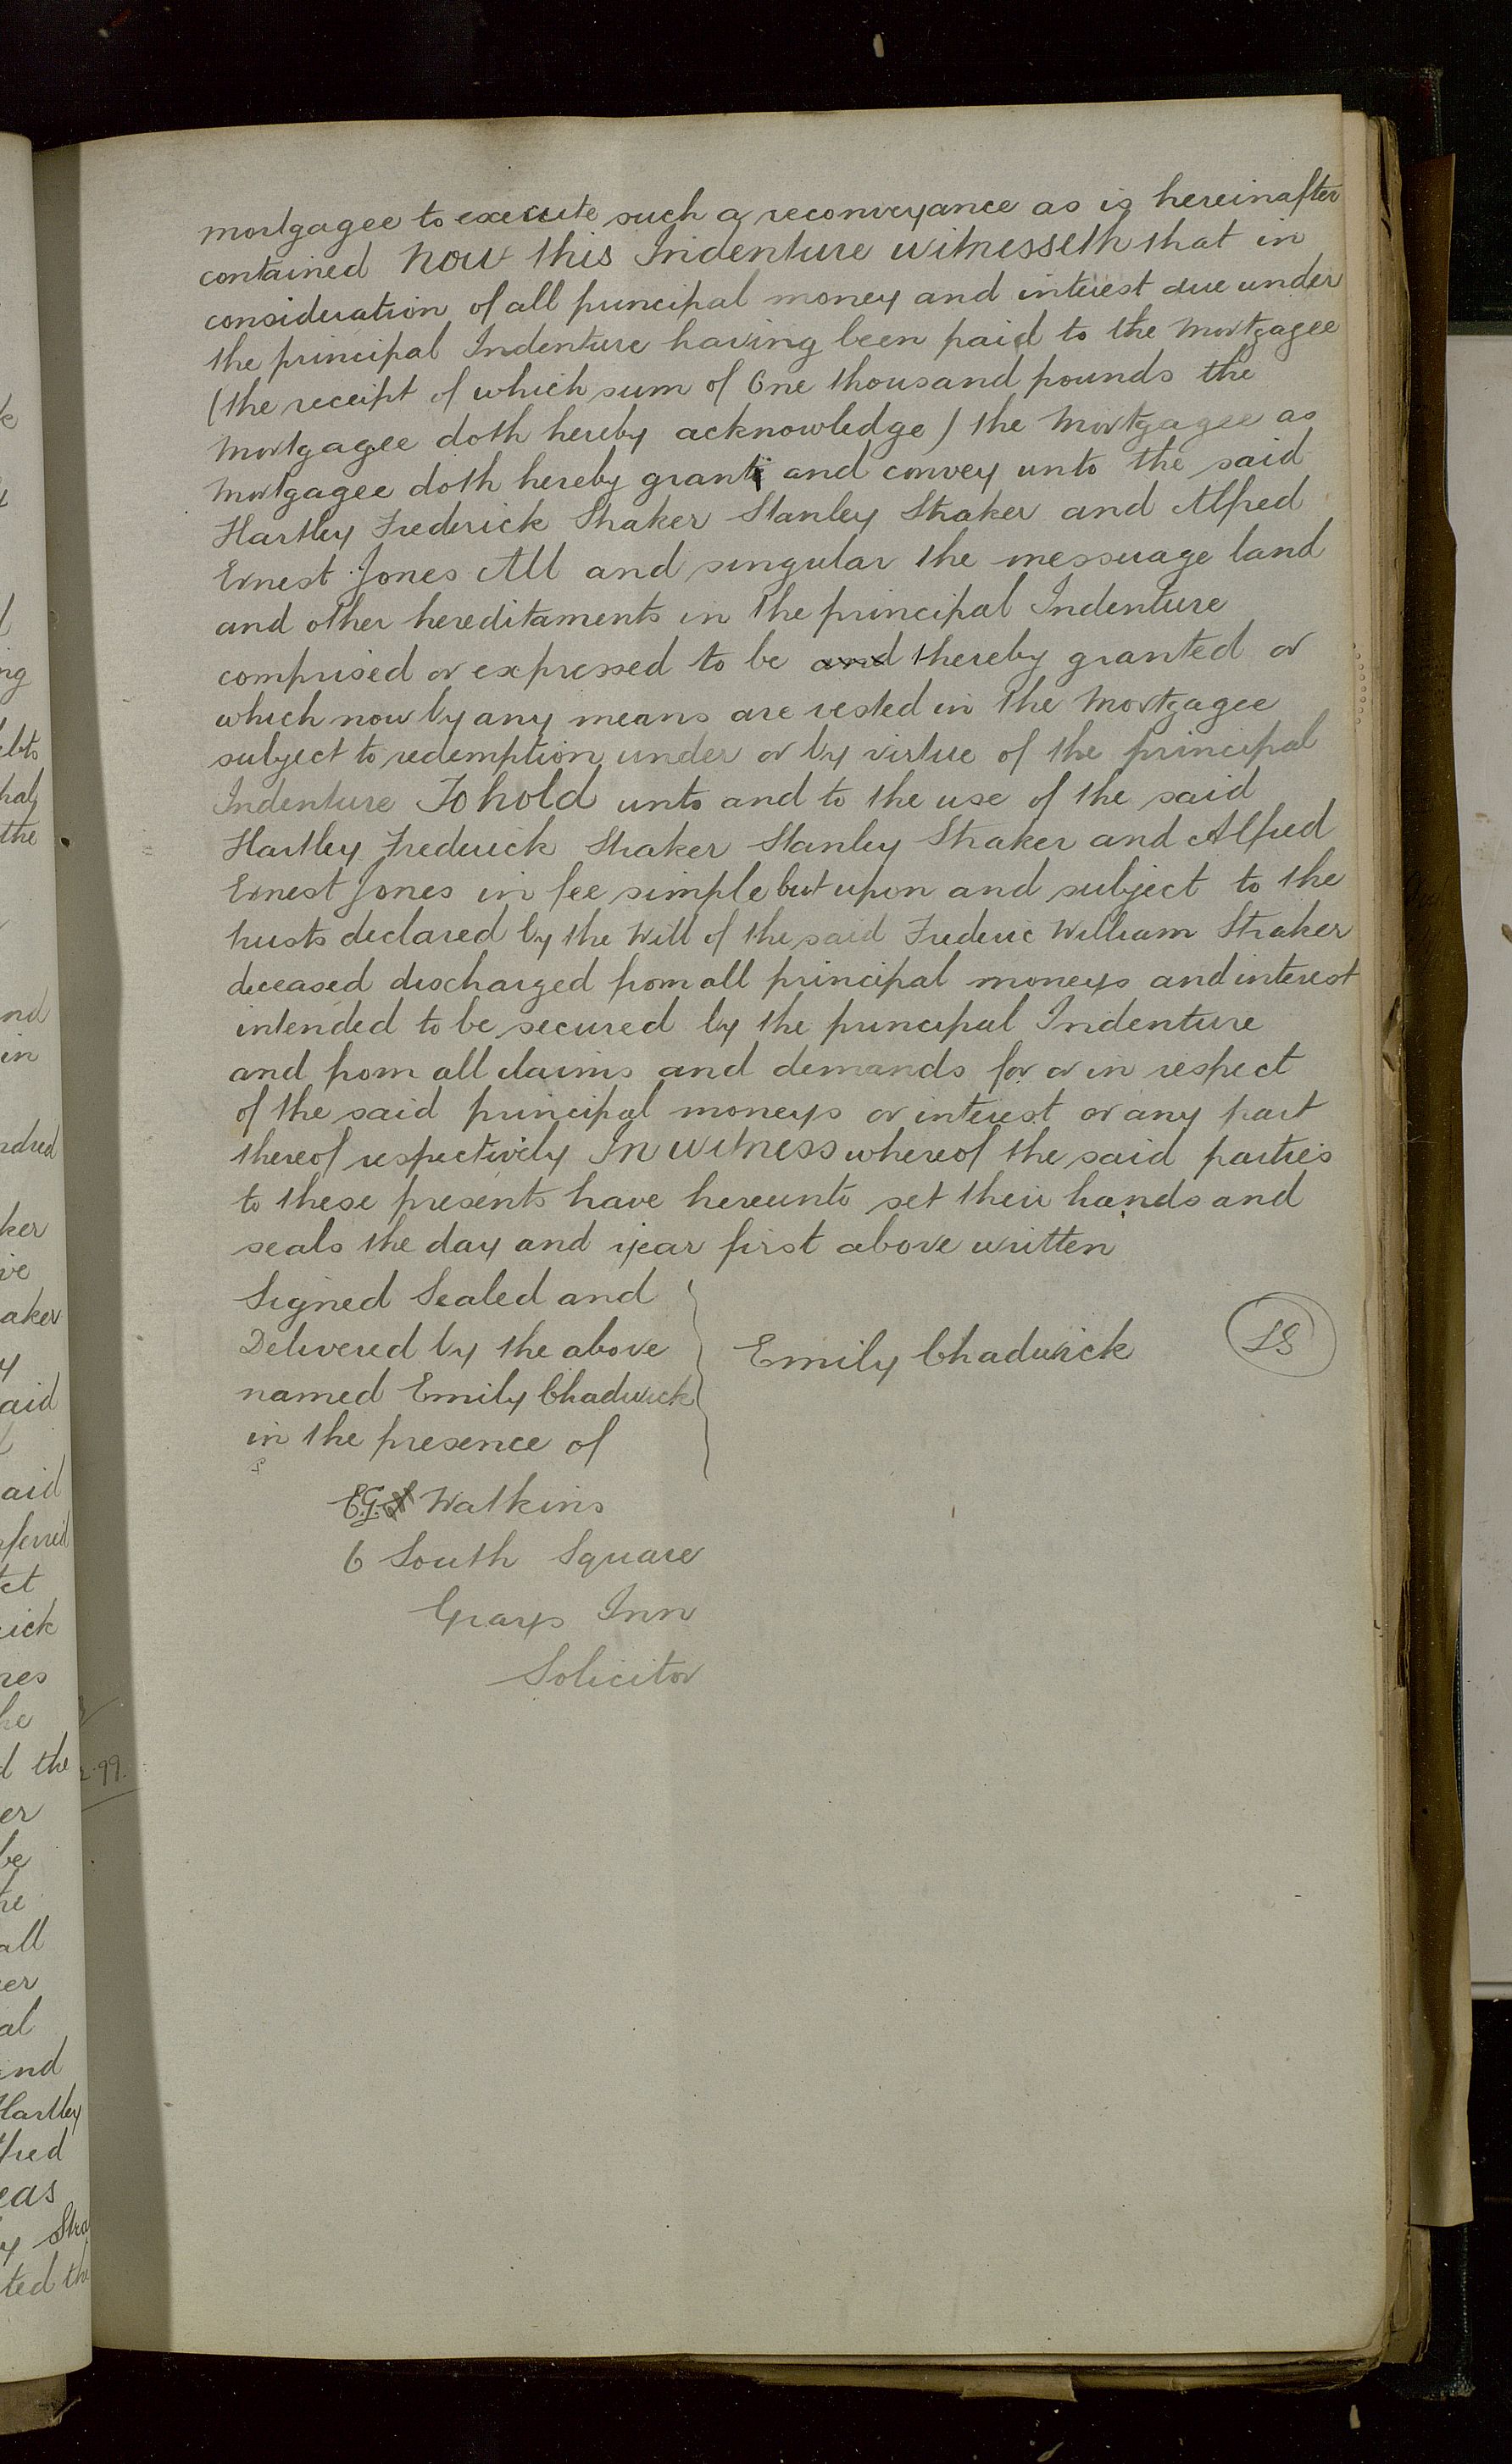 mortgagee to execute such a reconveyance as is hereinafter
contained Now this Indenture witnesseth that in
consideration of all principal money and interest due under
the principal Indenture having been paid to the Mortgagee
(the receipt of which sum of One thousand pounds the
Mortgagee doth hereby acknowledge) the Mortgagee as
Mortgagee doth hereby grant and convey unto the said
Hartley Frederick Straker Stanley Straker and Alfred
Ernest Jones All and singular the messuage land
and other hereditaments in the principal Indenture
comprised or expressed to be and thereby granted or
which now by any means are vested in the Mortgagee
subject to redemption under or by virtue of the principal
Indenture To hold unto and to the use of the said
Hartley Frederick Straker Stanley Straker and Alfred
Ernest Jones in fee simple but upon and subject to the
trusts declared by the Will of the said Frederic William Straker
deceased discharged from all principal moneys and interest
intended to be secured by the principal Indenture
and from all claims and demands for or in respect
of the said principal moneys or interest or any part
thereof respectively In witness whereof the said parties
to these presents have hereunto set their hands and
seals the day and year first above written
Signed Sealed and
Delivered by the above
named Emily Chadwick
in the presence of
Emily Chadwick LS
E.G. Watkins
6 South Square
Grays Inn
Solicitor